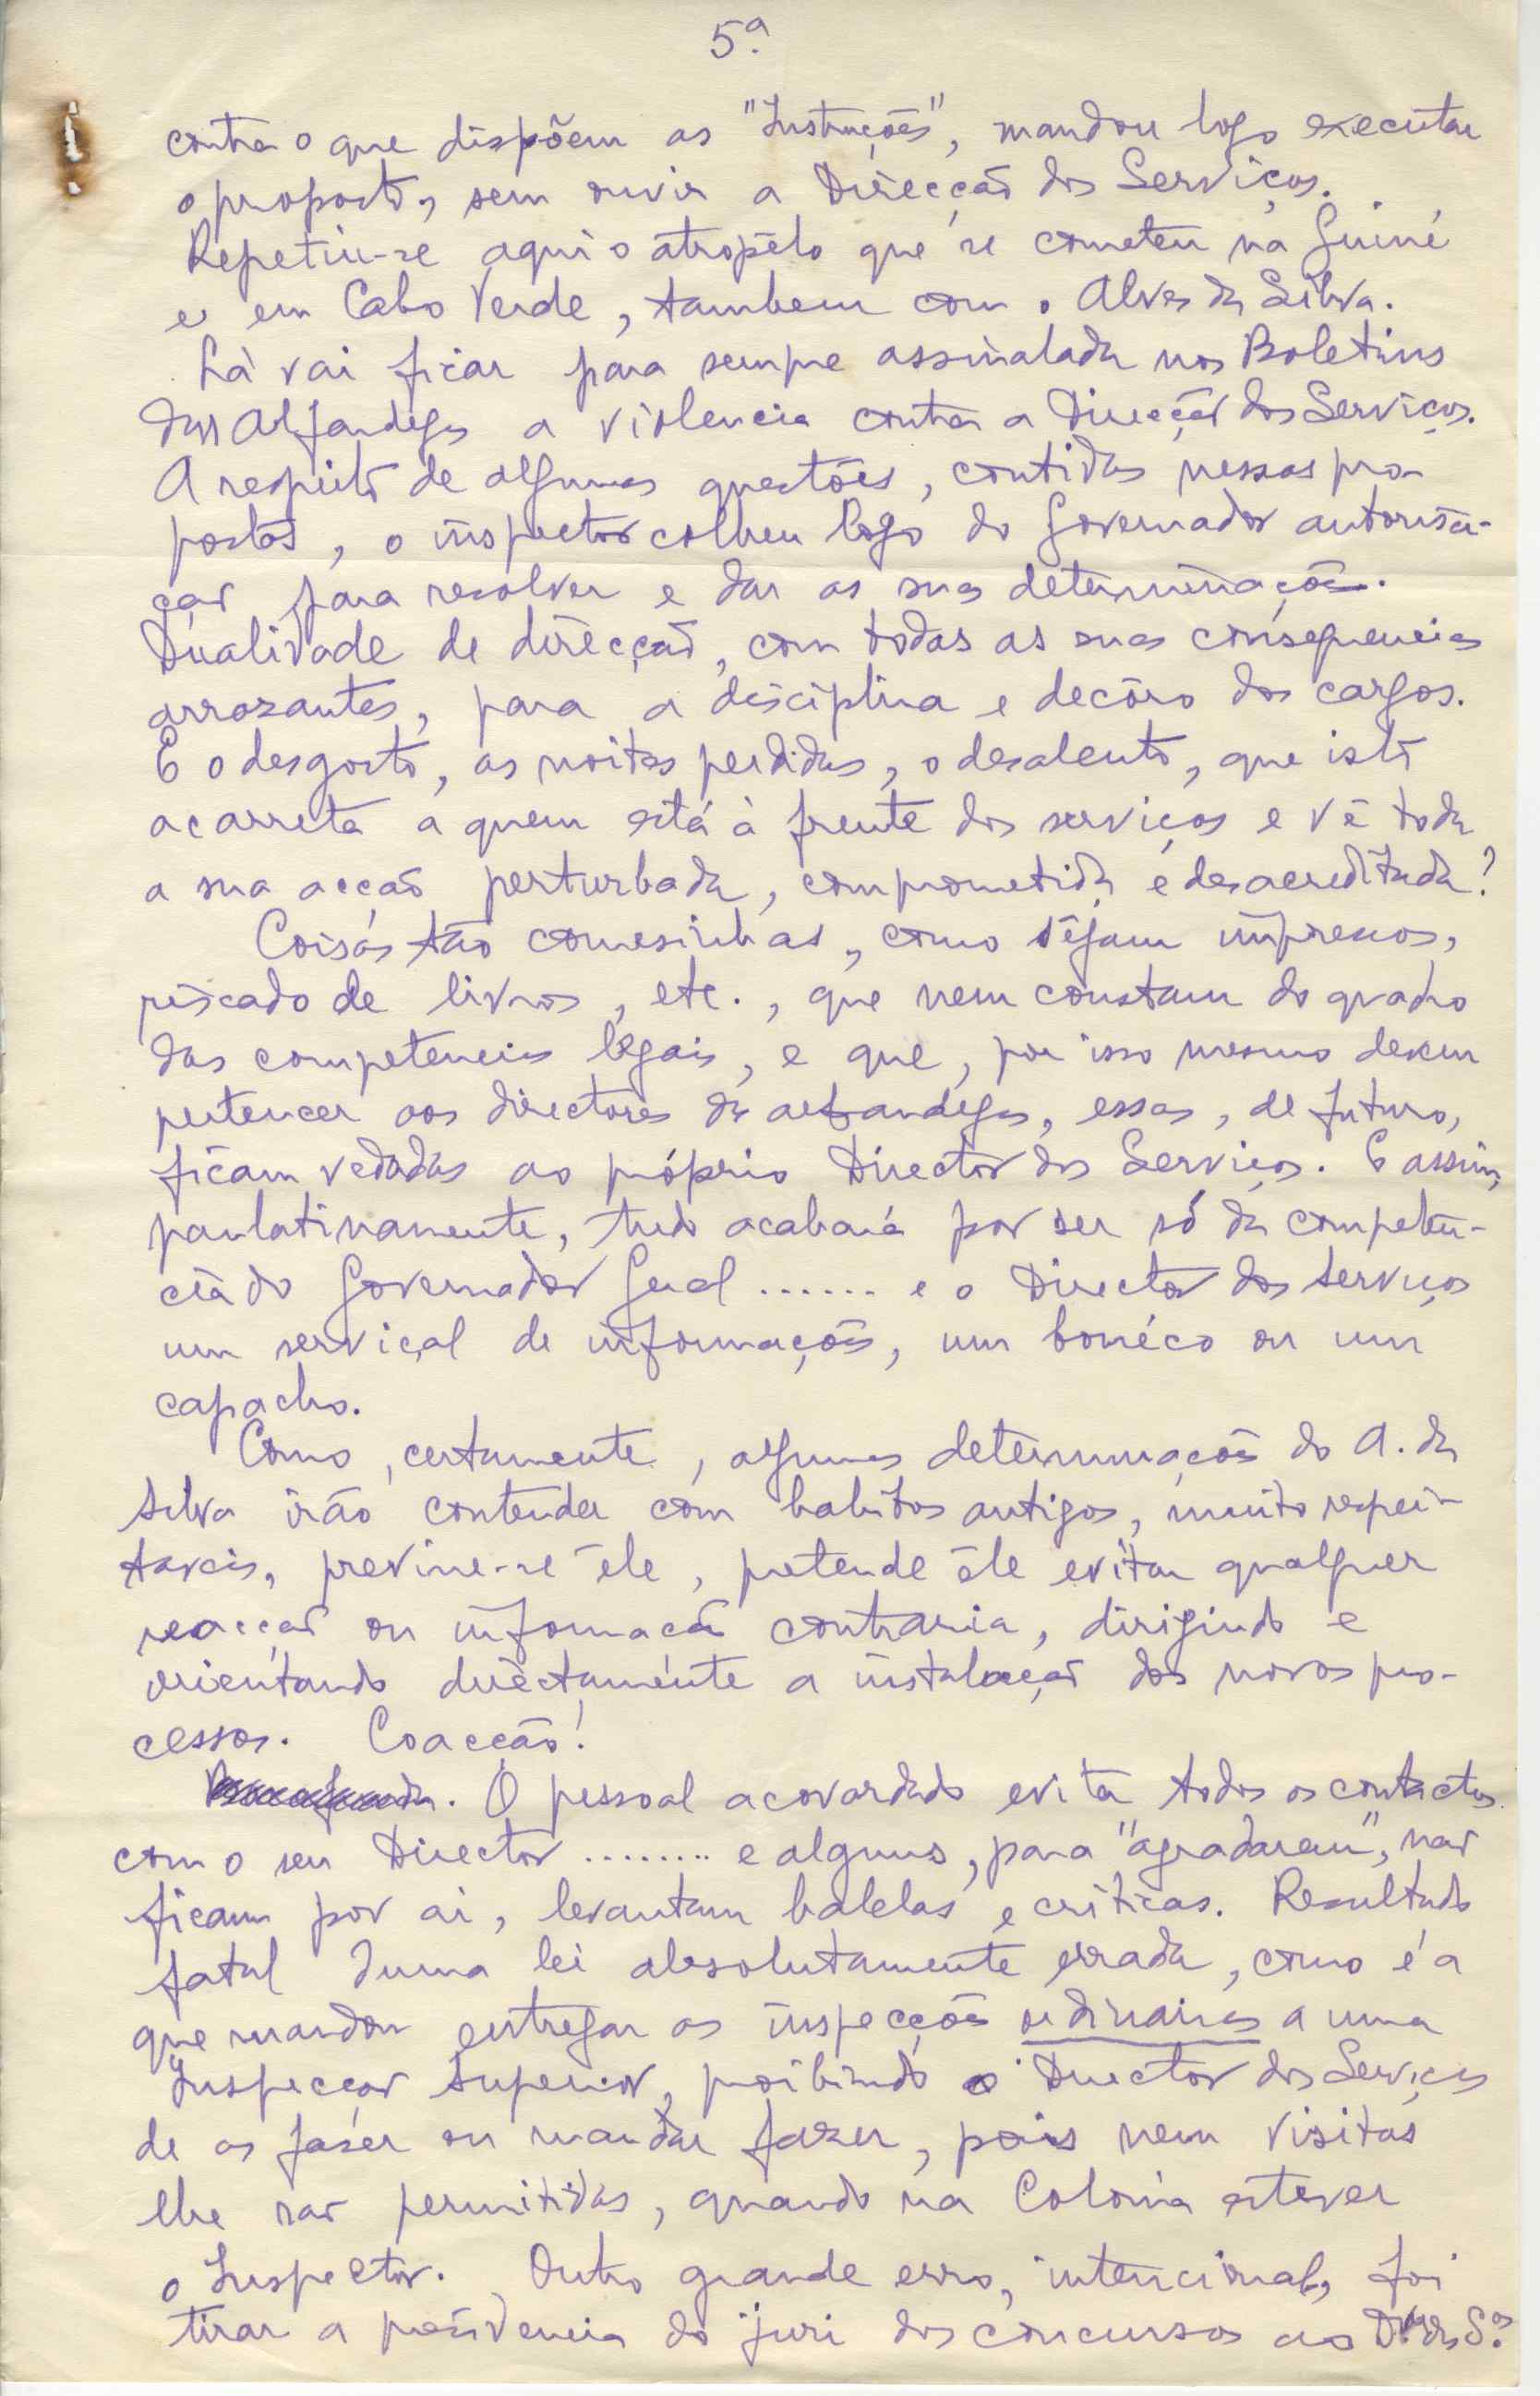 5.ª
contra o que dispõem as "Instruções", mandou logo executar
o proposto, sem ouvir a Direcção dos Serviços.
Repetiu-se aqui o atropêlo que se cometeu na Guiné
e em Cabo Verde, tambem com o Alves da Silva.
Lá vai ficar para sempre assinalada nos Boletins
das Alfandegas a violencia contra a Direcção dos Serviços.
A respeito de algumas questões, contidas nessas pro-
postas, o inspector colheu logo do Governador autorisa-
ção para resolver e dar as suas determinações.
Dualidade de direcção, com todas as suas consequencias
arrozantes, para a disciplina e decôro dos cargos.
E o desgosto, as noites perdidas, o desalento, que isto
acarreta a quem está à frente dos serviços e vê toda
a sua acção perturbada, comprometida e desacreditada?
Coisas tão comesinhas, como sejam impressos,
riscado de livros, etc., que nem constam do quadro
das competencias legais, e que, por isso mesmo devem
pertencer aos directores de alfandegas, essas, de futuro,
ficam vedadas ao próprio Director dos Serviços. E assim,
paulatinamente, tudo acabará por ser só da competen-
cia do Governador Geral ...... e o Director dos Serviços
um serviçal de informações, um bonéco ou um
capacho.
Como, certamente, algumas determinações do A. da
Silva irão contender com habitos antigos, muito respei-
taveis, previne-se êle, pretende êle evitar qualquer
reacção ou informação contraria, dirigindo e
orientando directamente a instalação dos novos pro-
cessos. Coacção!
O pessoal acovardado evita todos os contactos
com o seu Director ........ e alguns, para "agradarem", não
ficam por ai, levantam balelas e criticas. Resultado
fatal duma lei absolutamente errada, como é a
que mandou entregar as inspecções ordinarias a uma
Inspecção Superior, proibindo o Director dos Serviços
de as fazer ou mandar fazer, pois nem visitas
lhe são permitidas, quando na Colonia estever
o Inspector. Outro grande erro, intencional, foi
tirar a presidencia do juri dos concursos ao D.or dos S.os